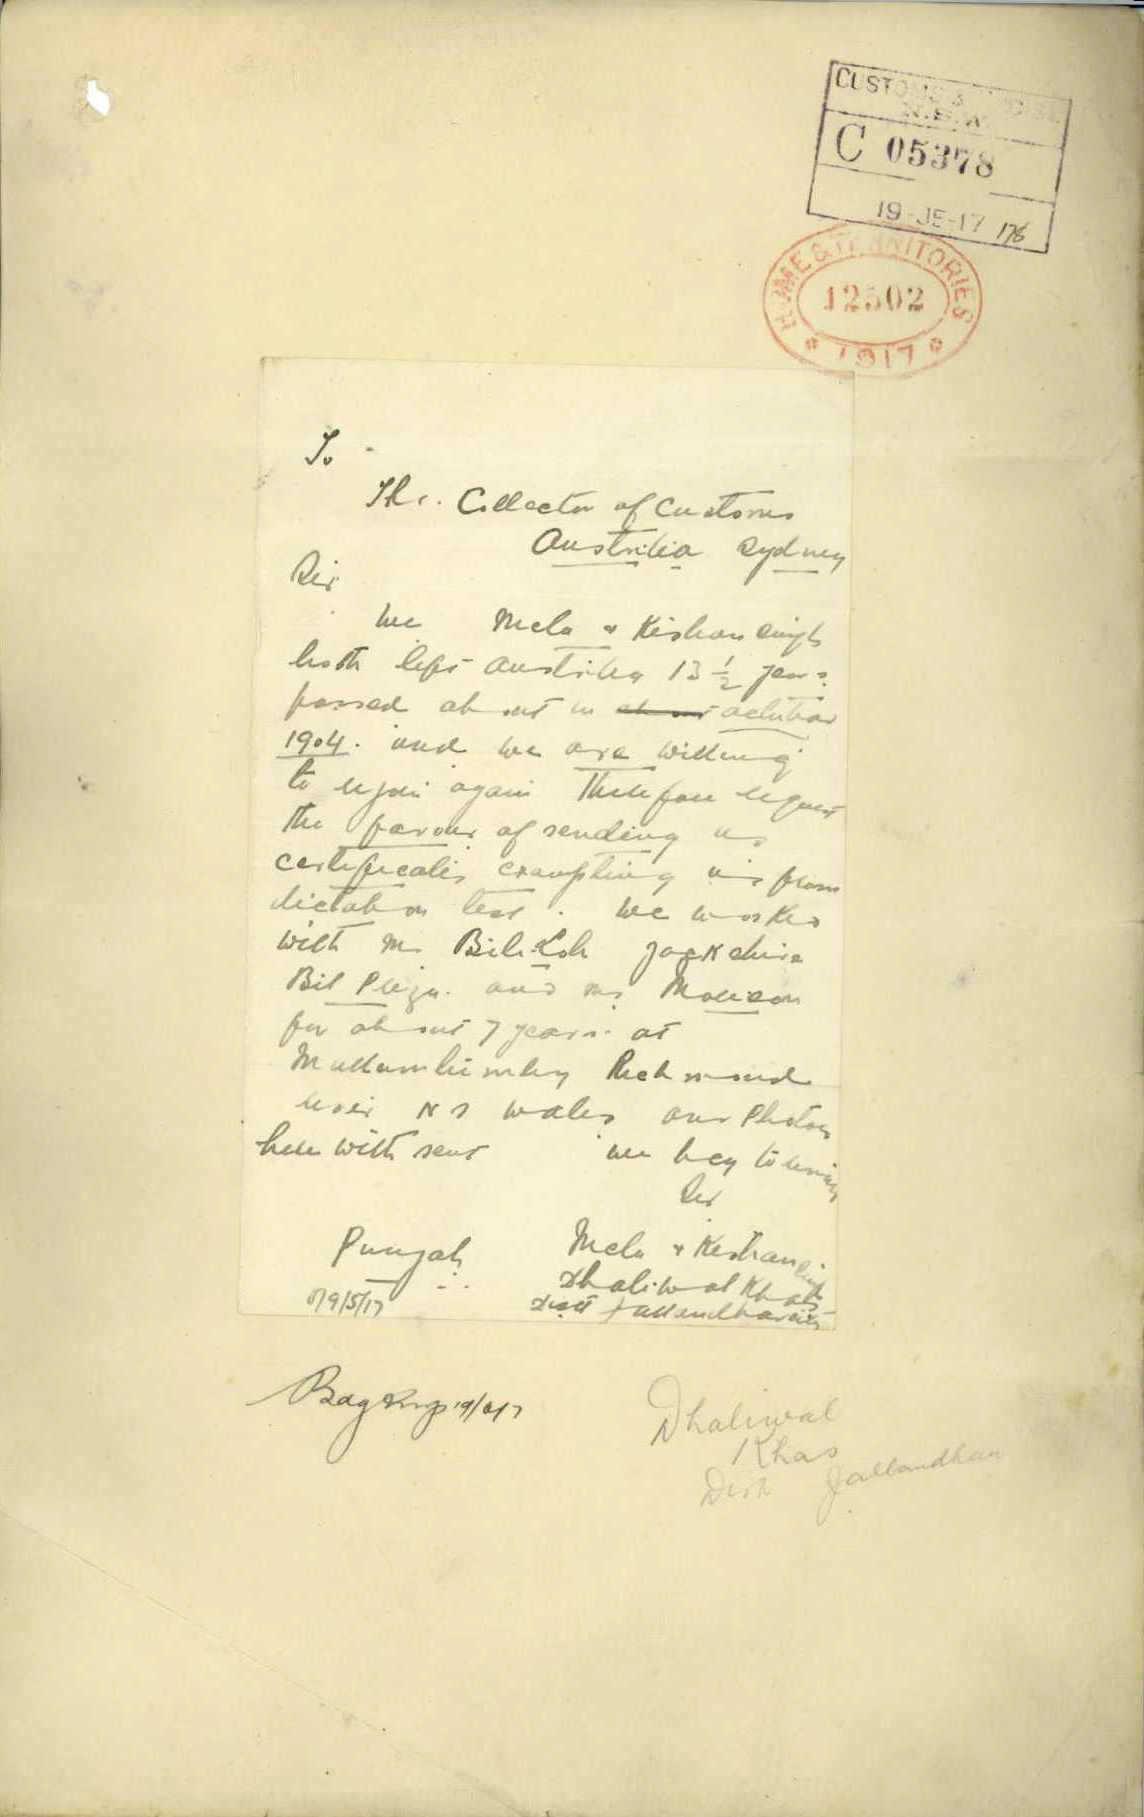 CUSTOMS & EXCISE
N.S.W.
C 05378
19-JE-17 178
HOME & TERRITORIES
12502
* 1917 *
To
The. Collector of Customs
Australia Sydney
Sir
We Mela & Kishan Singh
both left Australia 13 1/2 years
passed about in about October
1904. and we are willing
to rejoin again Therefore request
the favour of sending us
certificates exempting us from
dictation test. We worked
with Mr
and Mr
for about 7 years. at
Mullambimby Richmond
river N S Wales our Photos
here with sent we beg to remain
Sir
Punjab Mela & Kishan Singh
Dhaliwal Khas
d/9/5/17 Distt Jallandhar
19/6/17
Dhaliwal
Khas
Dist Jallandhar